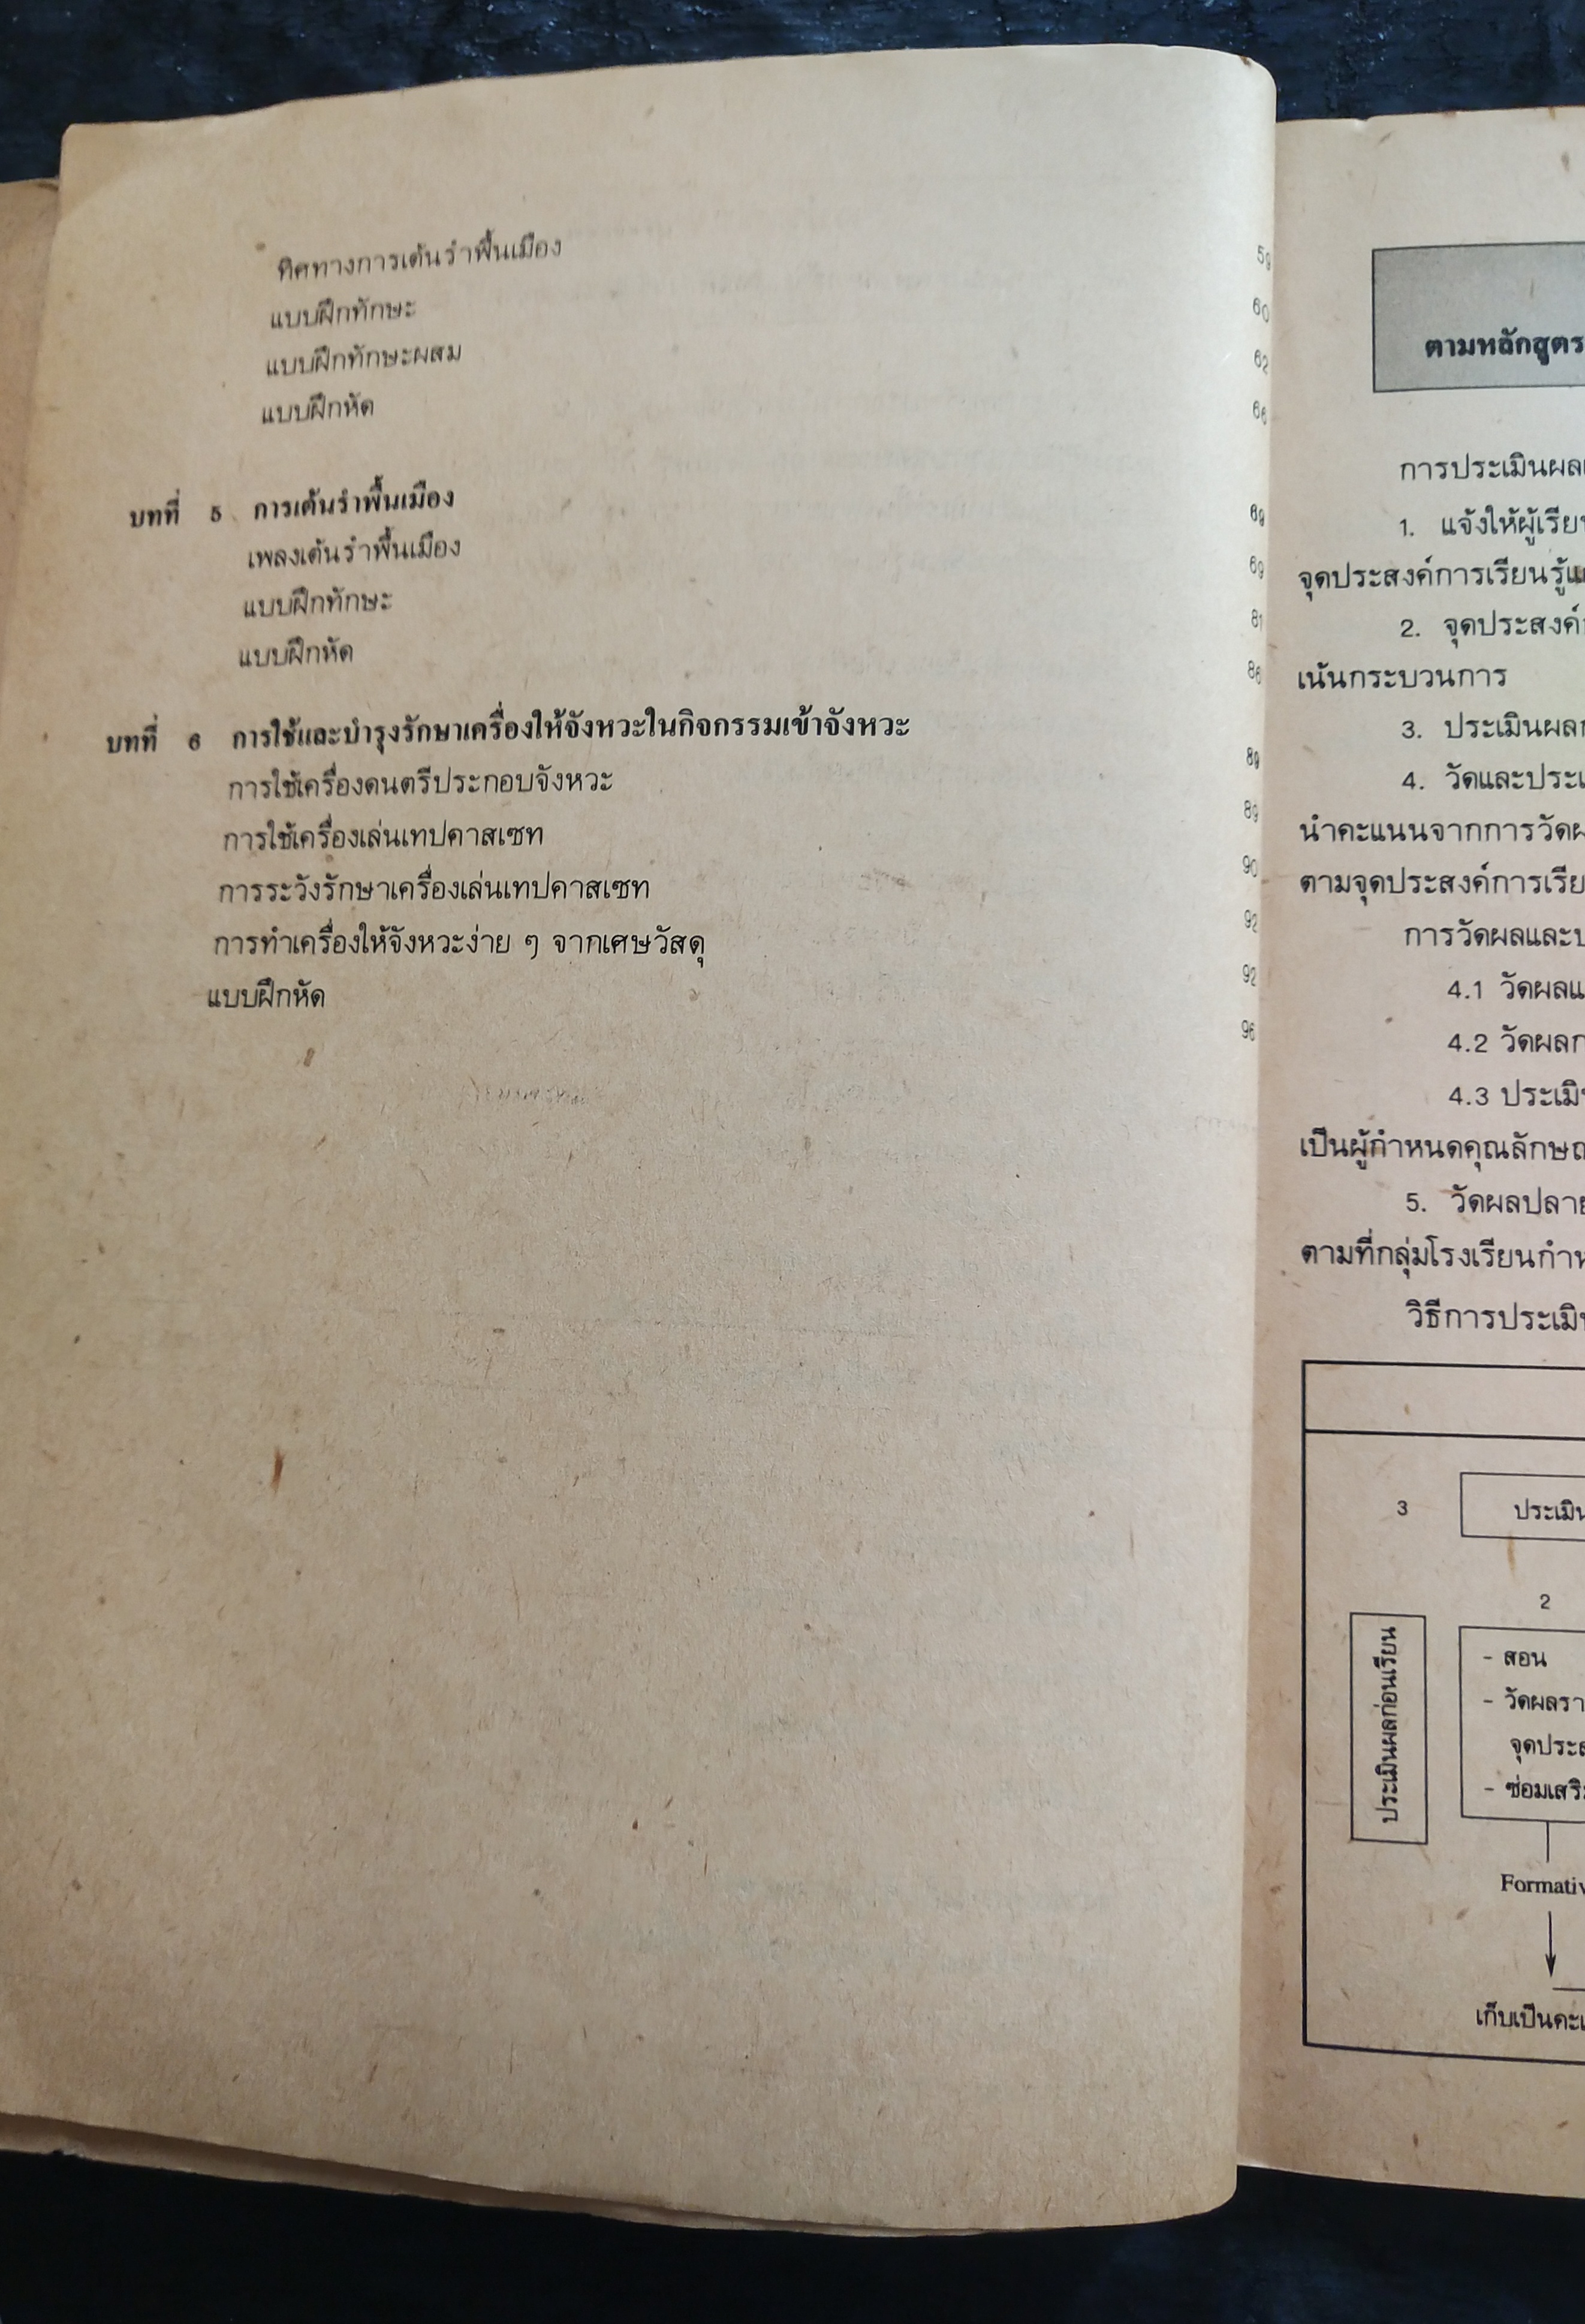 ทิศทางการเต้นรำพื้นเมือง 59
แบบฝึกทักษะ 60
แบบฝึกทักษะผสม 62
แบบฝึกหัด 66
บทที่ 5 การเต้นรำพื้นเมือง 69
เพลงเต้นรำพื้นเมือง 69
แบบฝึกทักษะ 81
แบบฝึกหัด 86
บทที่ 6 การใช้และบำรุงรักษาเครื่องให้จังหวะในกิจกรรมเข้าจังหวะ 89
การใช้เครื่องดนตรีประกอบจังหวะ 89
การใช้เครื่องเล่นเทปคาสเซท 90
การระวังรักษาเครื่องเล่นเทปคาสเซท 92
การทำเครื่องให้จังหวะง่าย ๆ จากเศษวัสดุ 92
แบบฝึกหัด 96
ตามหลักสูตร
การประเมินผล
1. แจ้งให้ผู้เรีย
จุดประสงค์การเรียนรู้
2. จุดประสงค์
เน้นกระบวนการ
3. ประเมินผล
4. วัดและประเ
นำคะแนนจากการวัด
ตามจุดประสงค์การเรีย
การวัดผลและ
4.1 วัดผลแ
4.2 วัดผลก
4.3 ประเมิ
เป็นผู้กำหนดคุณลักษณ
5. วัดผลปลาย
ตามที่กลุ่มโรงเรียนกำห
วิธีการประเมิ
3 ประเมิน
2
ประเมินผลก่อนเรียน
- สอน
- วัดผลรา
จุดประส
- ซ่อมเสริ
Formativ
เก็บเป็นคะแ